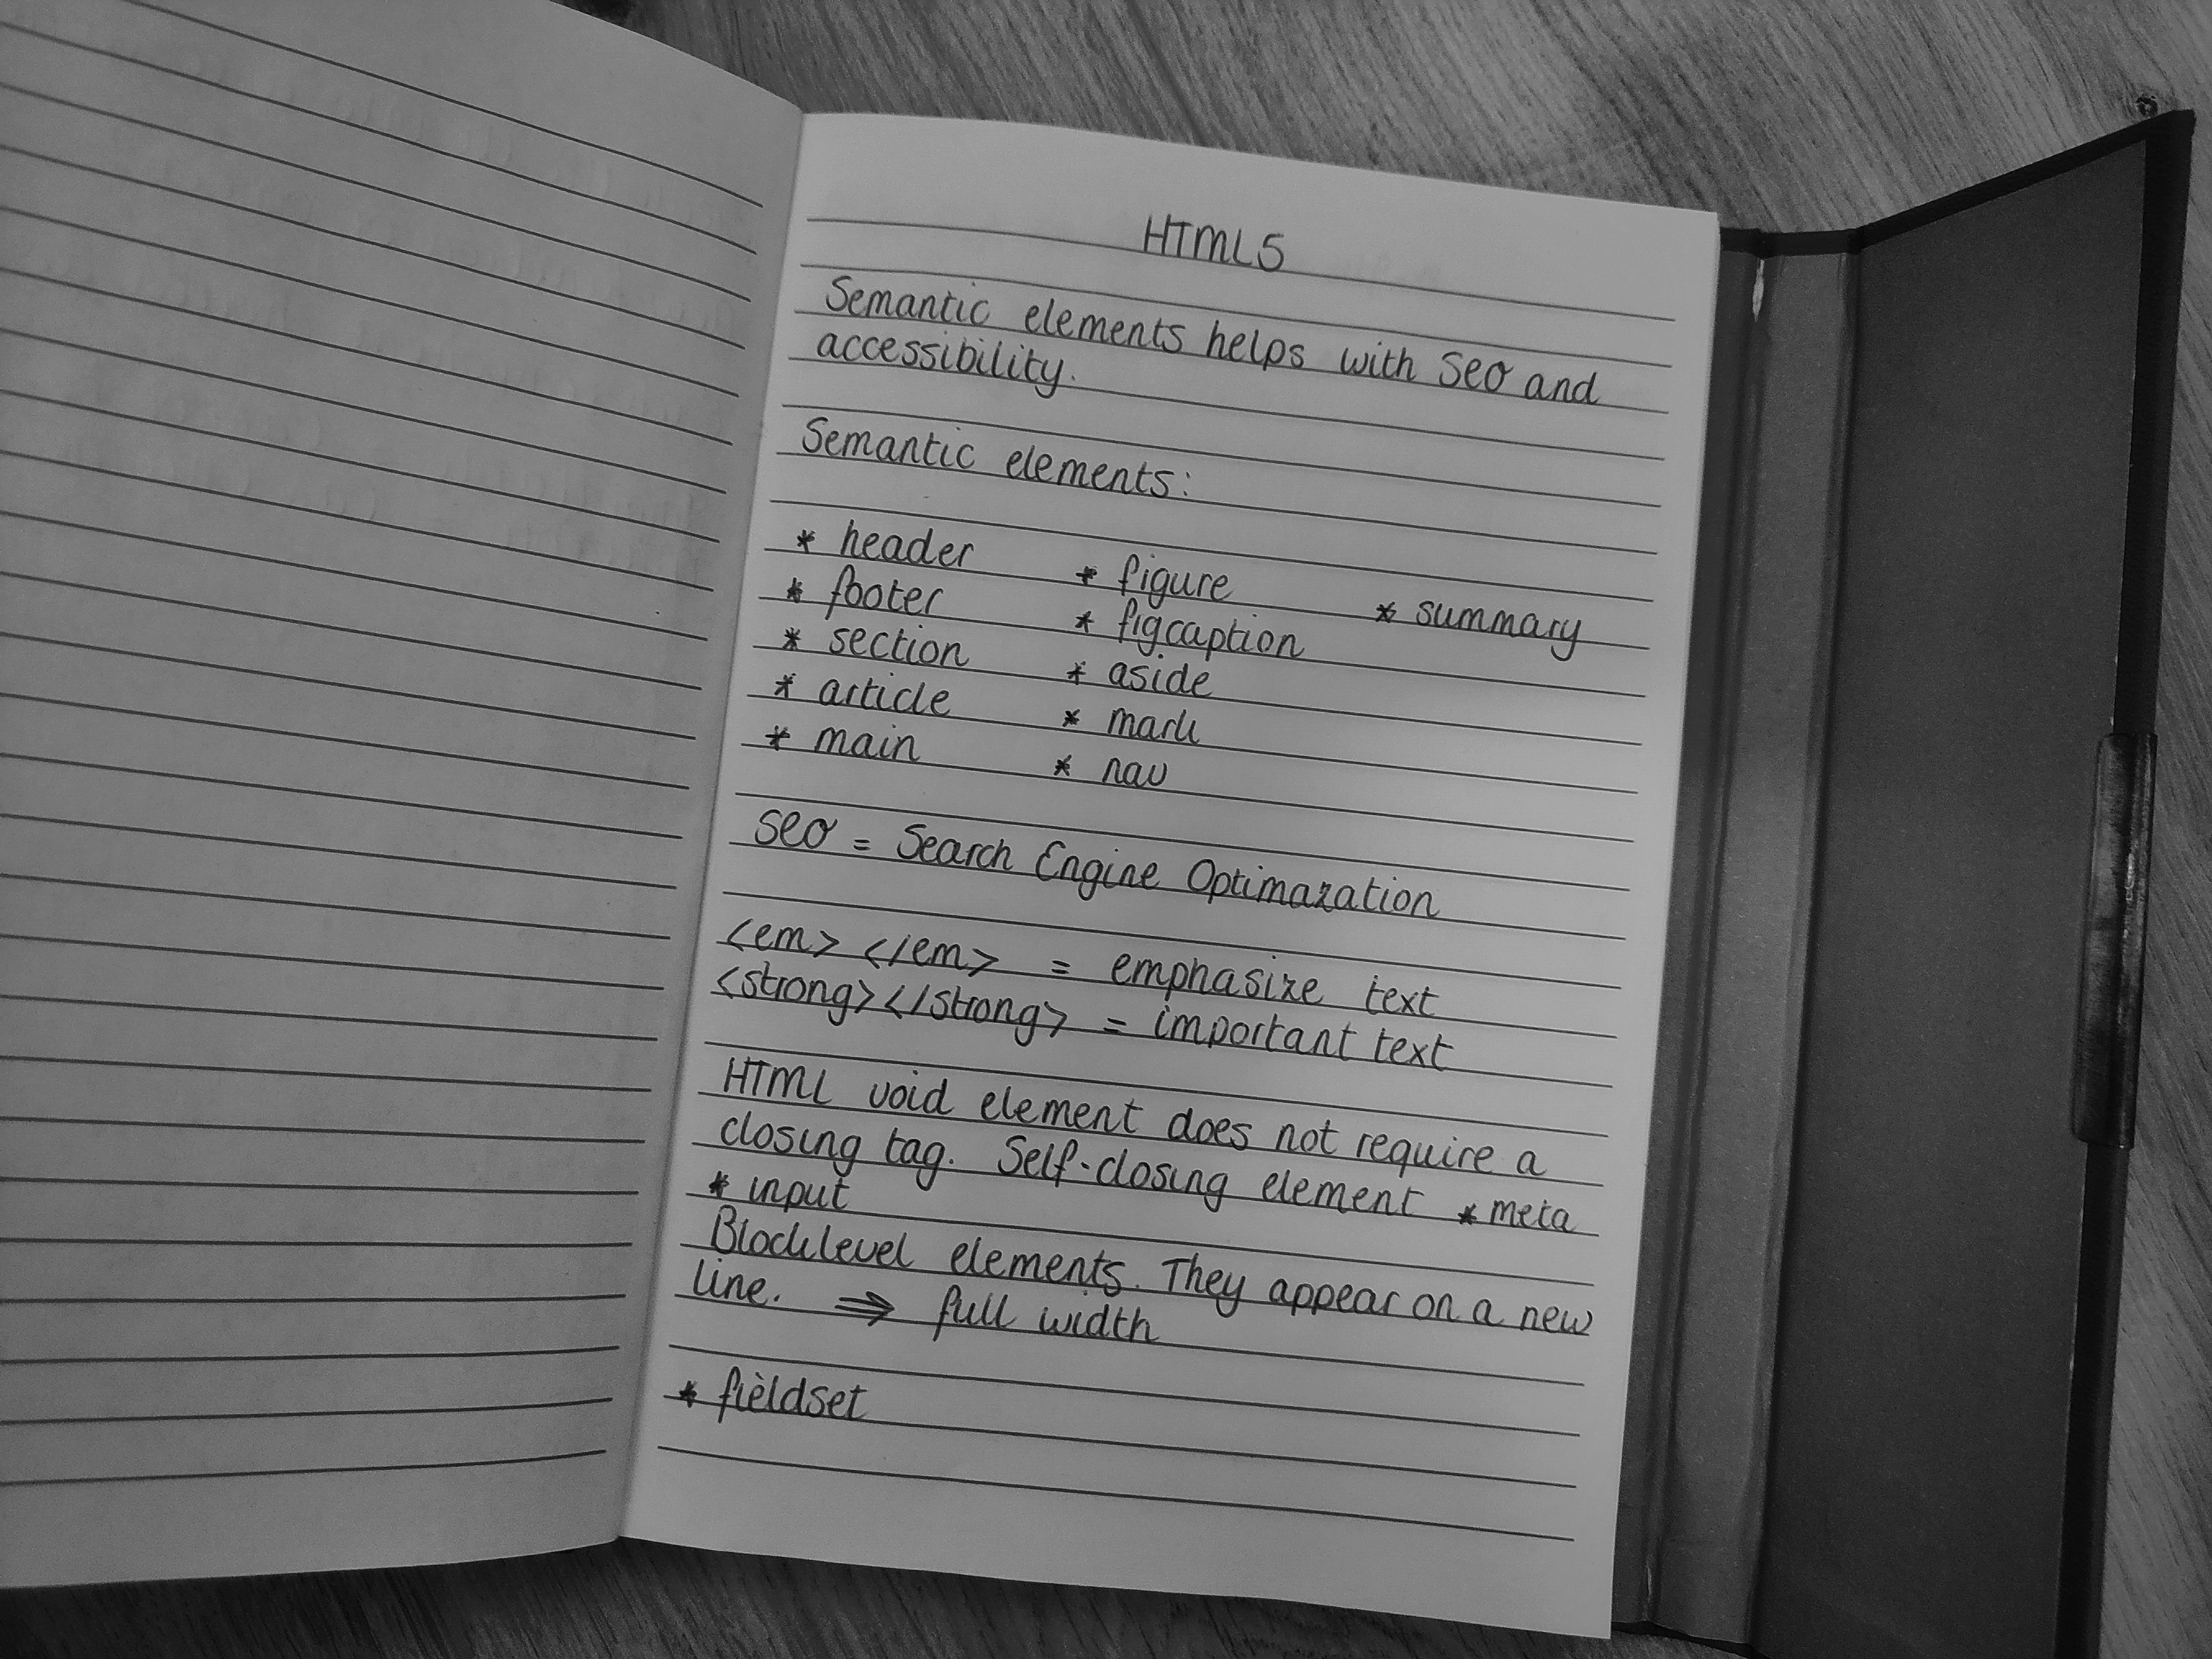 HTML5
Semantic elements helps with SEO and
accessibility.
Semantic elements:
* header * figure * summary
* footer * figcaption
* section * aside
* article * mark
* main * nav
SEO = Search Engine Optimazation
<em> </em> = emphasize text
<strong></strong> = important text
HTML void element does not require a
closing tag. Self-closing element * meta
* input
Blocklevel elements. They appear on a new
line. ⇒ full width
* fieldset